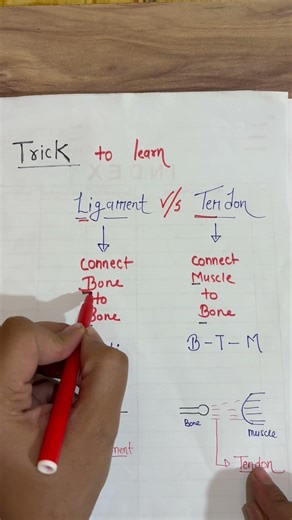 Trick to learn
Ligament v/s Tendon
Connect
Bone
to
Bone
Connect
Muscle
to
Bone
B-T-M
Bone
Muscle
Tendon